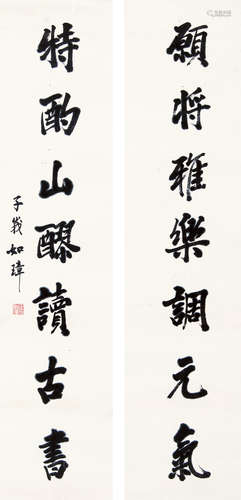 願將雅樂調元氣
特酌山醪讀古書
子我如璋